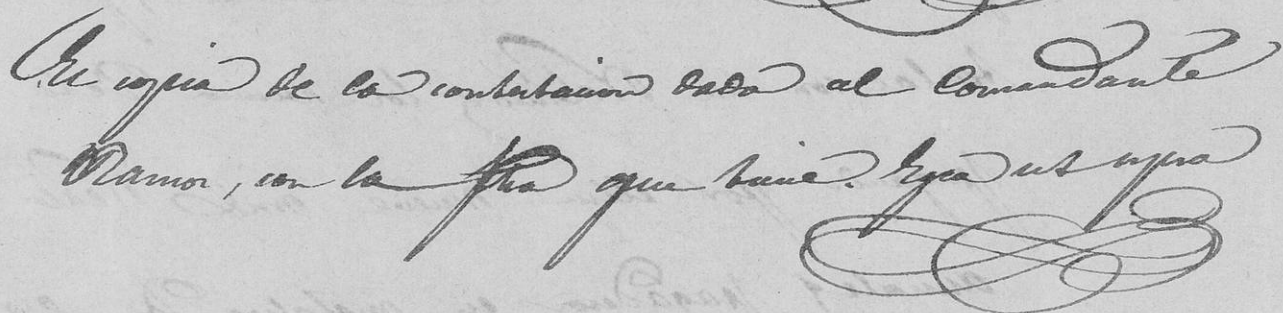 Es copia de la contestacion dada al Comandante
Ramos, con la fha que tiene. Egea ut supra